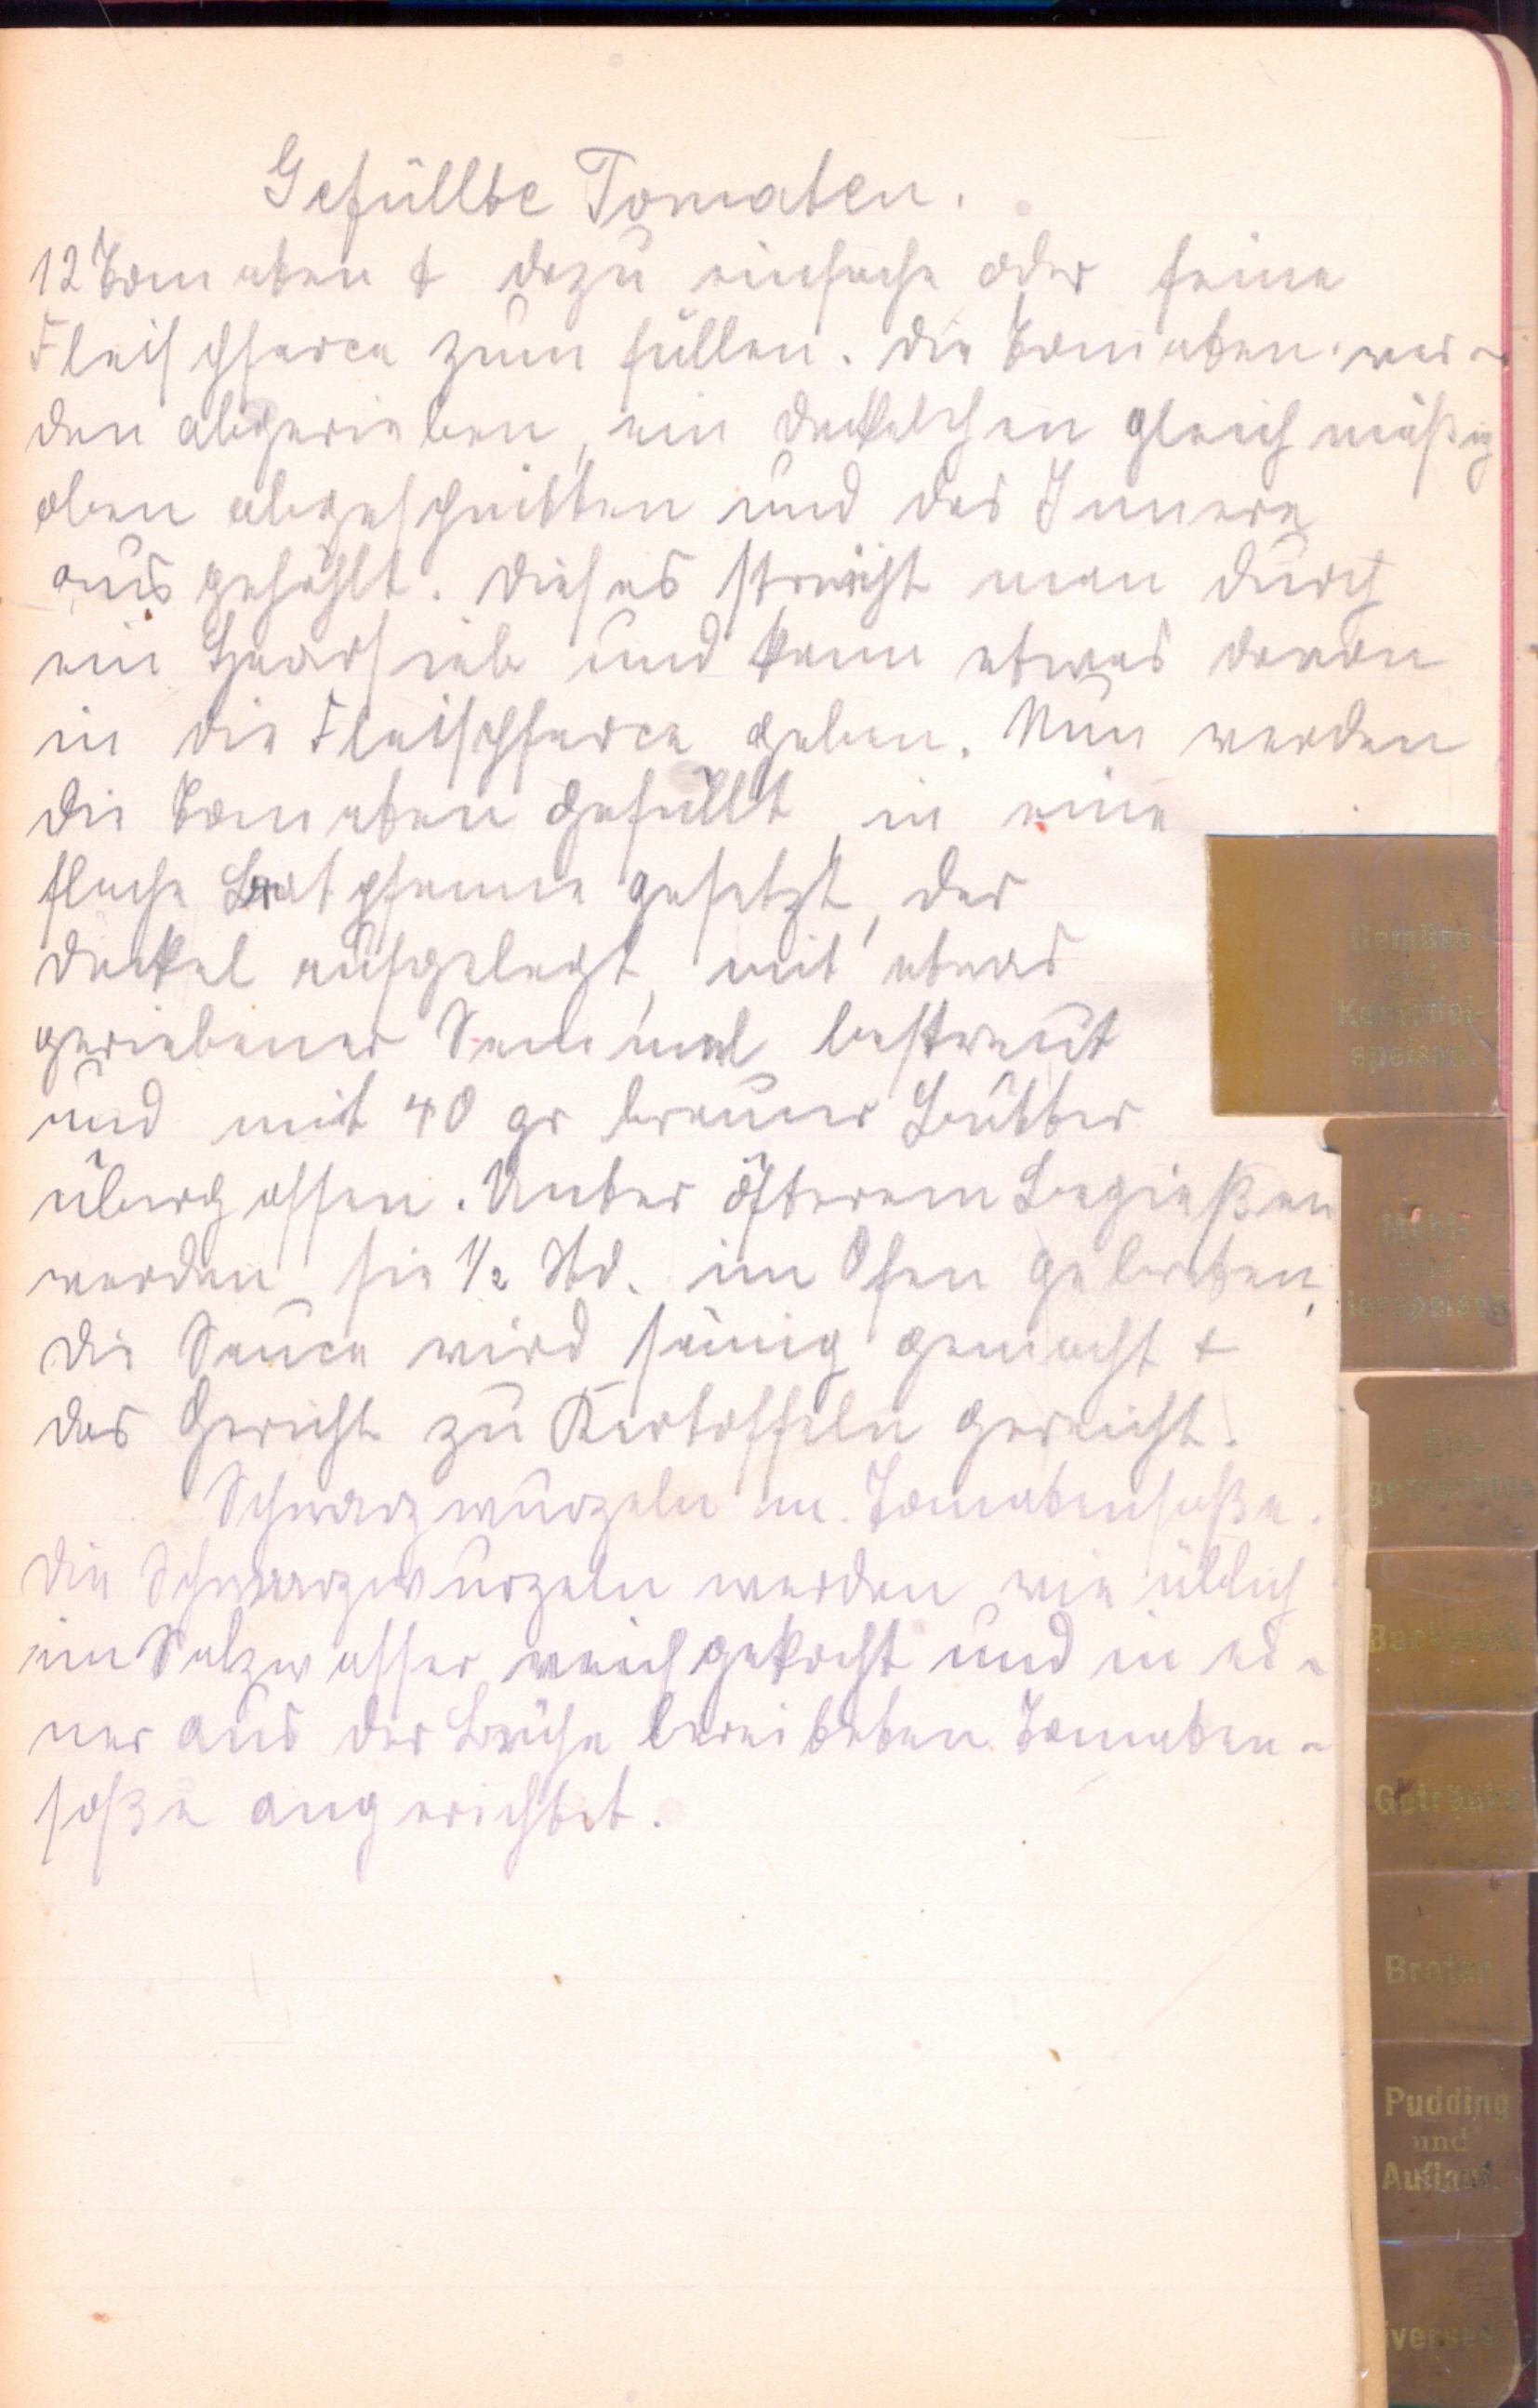 Gefüllte Tomaten.
12 Tomaten & dazu einfache oder feine
Fleischfarce zum füllen. Die Tomaten wer-
den abgerieben, ein Deckelchen gleichmäßig
oben abgeschnitten und das Innere
ausgehöhlt. Dieses streicht man durch
ein Haarsieb und kann etwas davon
in die Fleischfarce geben. Nun werden
die Tomaten gefüllt, in eine
flache Bratpfanne gesetzt, der
Deckel aufgelegt, mit etwas
geriebener Semmel bestreut
und mit 40 gr brauner Butter
übergossen. Unter öfterem Begießen
werden sie 1/2 Std. im Ofen gebraten,
die Sauce wird sämig gemacht &
das Gericht zu Kartoffeln gereicht.
Schwarzwurzeln m. Tomatensoße.
Die Schwarzwurzeln werden wie üblich
im Salzwasser weichgekocht und in ei-
ner aus der Brühe bereiteten Tomaten-
soße angerichtet.
Gemüse
und
Kartoffel-
speisen.
Mehl-
Ein-
gemachtes
Backwerk
Getränke
Braten
Pudding
und
Auflauf.
iverses.